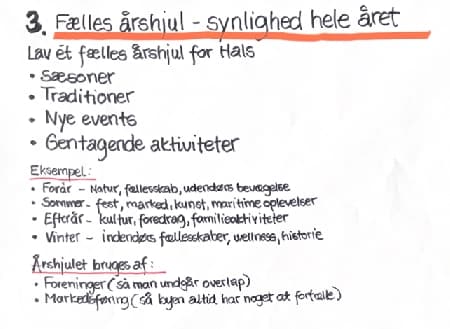 3. Fælles årshjul - synlighed hele året
Lav ét fælles årshjul for Hals
• Sæsoner
• Traditioner
• Nye events
• Gentagende aktiviteter
Eksempel:
• Forår - Natur, fællesskab, udendørs bevægelse
• Sommer - fest, marked, kunst, maritime oplevelser
• Efterår - kultur, foredrag, familieaktiviteter
• Vinter - indendørs fællesskaber, wellness, historie
Årshjulet bruges af:
• Foreninger (så man undgår overlap)
• Markedsføring (så byen altid har noget at fortælle)